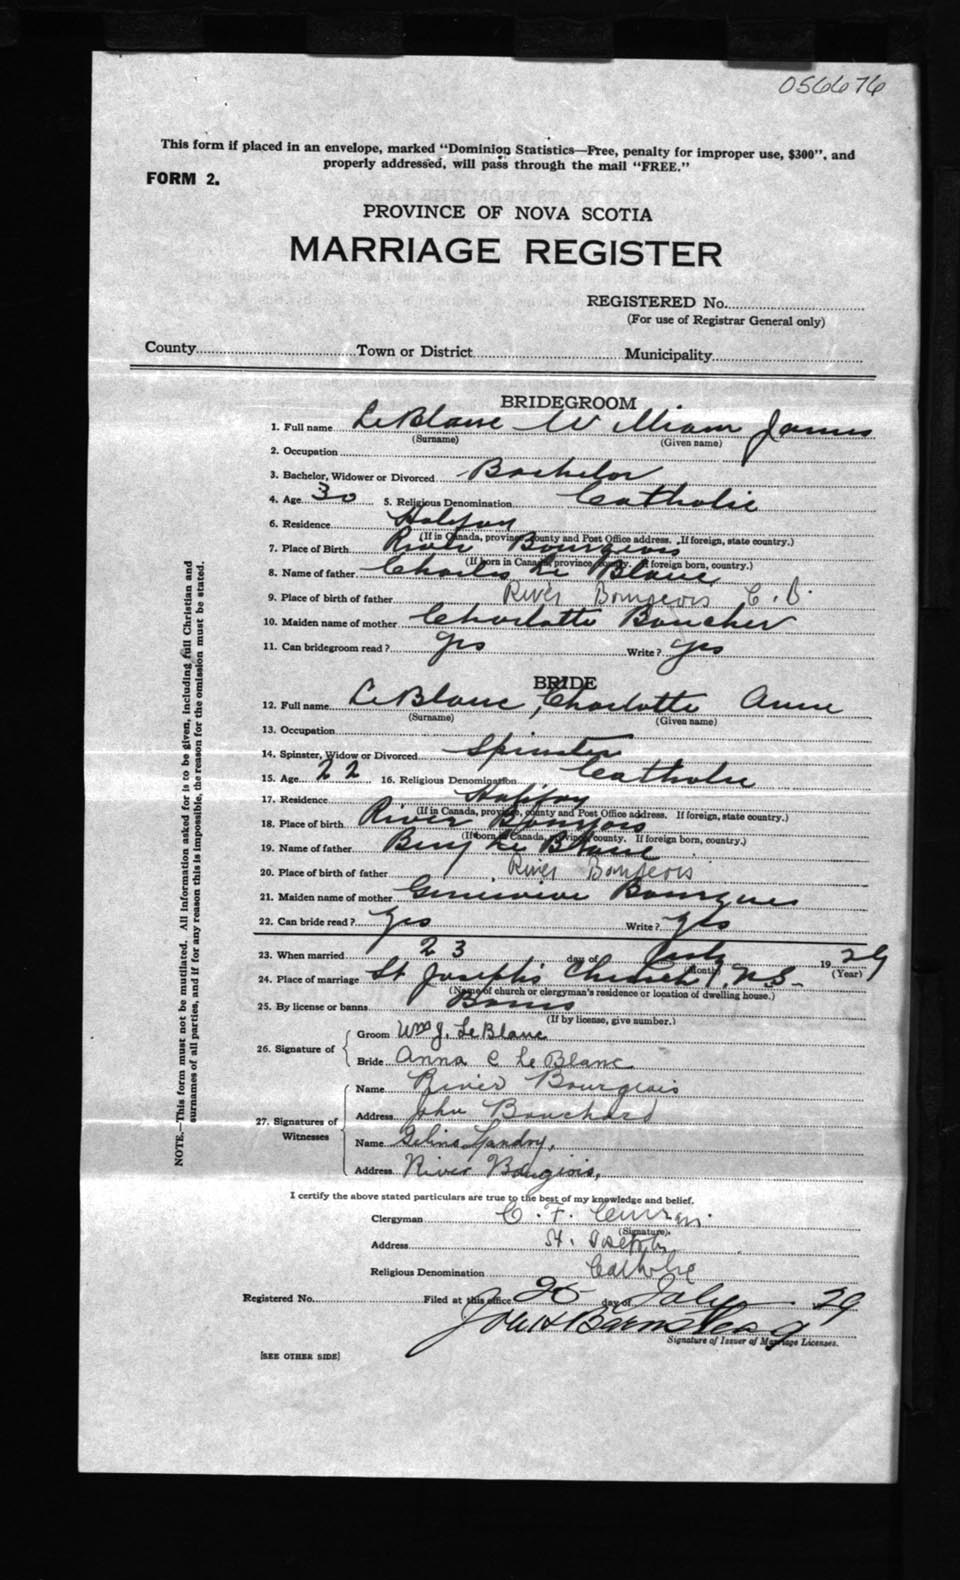 056676
This form if placed in an envelope, marked "Dominion Statistics—Free, penalty for improper use, $300", and
properly addressed, will pass through the mail "FREE."
FORM 2.
PROVINCE OF NOVA SCOTIA
MARRIAGE REGISTER
REGISTERED No.
(For use of Registrar General only)
County Town or District Municipality
BRIDEGROOM
1. Full name LeBlanc William James
(Surname) (Given name)
2. Occupation
3. Bachelor, Widower or Divorced Bachelor
4. Age 30 5. Religious Denomination Catholic
6. Residence Halifax
(If in Canada, province, county and Post Office address. If foreign, state country.)
7. Place of Birth River Bourgeois
(If born in Canada, province, county. If foreign born, country.)
8. Name of father Charles Le Blanc
9. Place of birth of father River Bourgeois C. B.
10. Maiden name of mother Charlotte Boucher
11. Can bridegroom read? yes Write? yes
BRIDE
12. Full name LeBlanc, Charlotte Anne
(Surname) (Given name)
13. Occupation
14. Spinster, Widow or Divorced Spinster
15. Age 22 16. Religious Denomination Catholic
17. Residence Halifax
(If in Canada, province, county and Post Office address. If foreign, state country.)
18. Place of birth River Bourgeois
(If born in Canada, province, county. If foreign born, country.)
19. Name of father Benj Le Blanc
20. Place of birth of father River Bourgeois
21. Maiden name of mother Genevieve Bourques
22. Can bride read? yes Write? yes
23. When married 23 day of July 1929
(Month) (Year)
24. Place of marriage St Joseph's Church, N.S.
(Name of church or clergyman's residence or location of dwelling house.)
25. By license or banns Banns
(If by license, give number.)
26. Signature of
Groom Wm J. LeBlanc
Bride Anna C Le Blanc
27. Signatures of Witnesses
Name River Bourgeois
Address John Bouchard
Name Landry,
Address River Bougiois,
I certify the above stated particulars are true to the best of my knowledge and belief.
Clergyman C. F. Curran
(Signature)
Address St. Joseph
Religious Denomination Catholic
Registered No. Filed at this office 26 day of July 29
Signature of Issuer of Marriage Licenses.
[SEE OTHER SIDE]
NOTE.—This form must not be mutilated. All information asked for is to be given, including full Christian and
surnames of all parties, and if for any reason this is impossible, the reason for the omission must be stated.